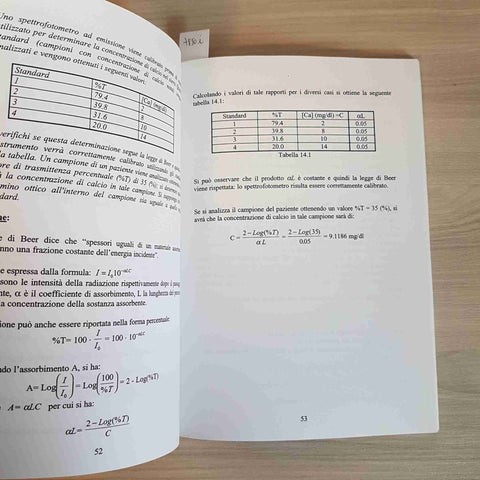 Uno spettrofotometro ad emissione viene calibrato prima di
utilizzato per determinare la concentrazione di calcio nel
standard (campioni con concentrazione di calcio nota)
nalizzati e vengono ottenuti i seguenti valori:
Standard %T [Ca] (mg/dl)
1 79.4 2
2 39.8 8
3 31.6 10
4 20.0 14
verifichi se questa determinazione segue la legge di Beer
strumento verrà correttamente calibrato utilizzando
la tabella. Un campione di un paziente viene analizzato
ore di trasmittenza percentuale (%T) di 35 (%);
la concentrazione di calcio in tale campione. Si supponga
mino ottico all'interno del campione sia uguale a quello
dard.
ne:
e di Beer dice che “spessori uguali di un materiale
nno una frazione costante dell'energia incidente”.
e espressa dalla formula: I = I₀10^-αLC
sono le intensità della radiazione rispettivamente dopo il
nte, α è il coefficiente di assorbimento, L la lunghezza del
a concentrazione della sostanza assorbente.
ione può anche essere riportata nella forma percentuale:
%T= 100 · I/I₀ = 100 · 10^-αLC
ndo l'assorbimento A, si ha:
A= Log(I/I₀) = Log(100/%T) = 2 - Log(%T)
A= αLC per cui si ha:
αL= 2 − Log(%T)/C
52
Calcolando i valori di tale rapporti per i diversi casi si ottiene la seguente
tabella 14.1:
Standard %T [Ca] (mg/dl) =C αL
1 79.4 2 0.05
2 39.8 8 0.05
3 31.6 10 0.05
4 20.0 14 0.05
Tabella 14.1
Si può osservare che il prodotto αL è costante e quindi la legge di Beer
viene rispettata: lo spettrofotometro risulta essere correttamente calibrato.
Se si analizza il campione del paziente ottenendo un valore %T = 35 (%), si
avrà che la concentrazione di calcio in tale campione sarà di:
C = 2 − Log(%T)/α L = 2 − Log(35)/0.05 = 9.1186 mg/dl
53